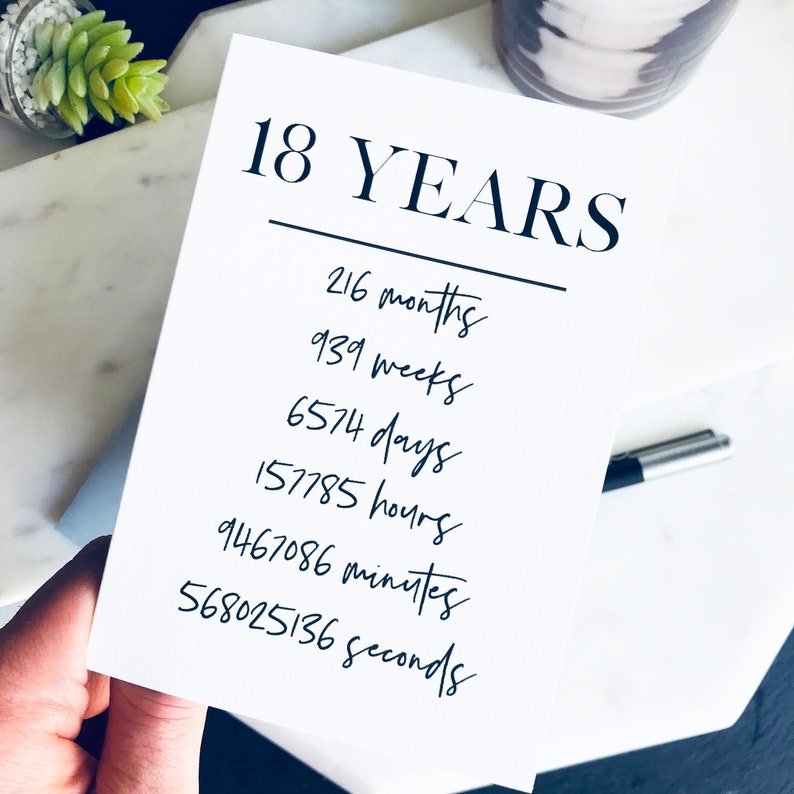 18 YEARS
216 months
939 weeks
6574 days
157785 hours
9467086 minutes
568025136 seconds